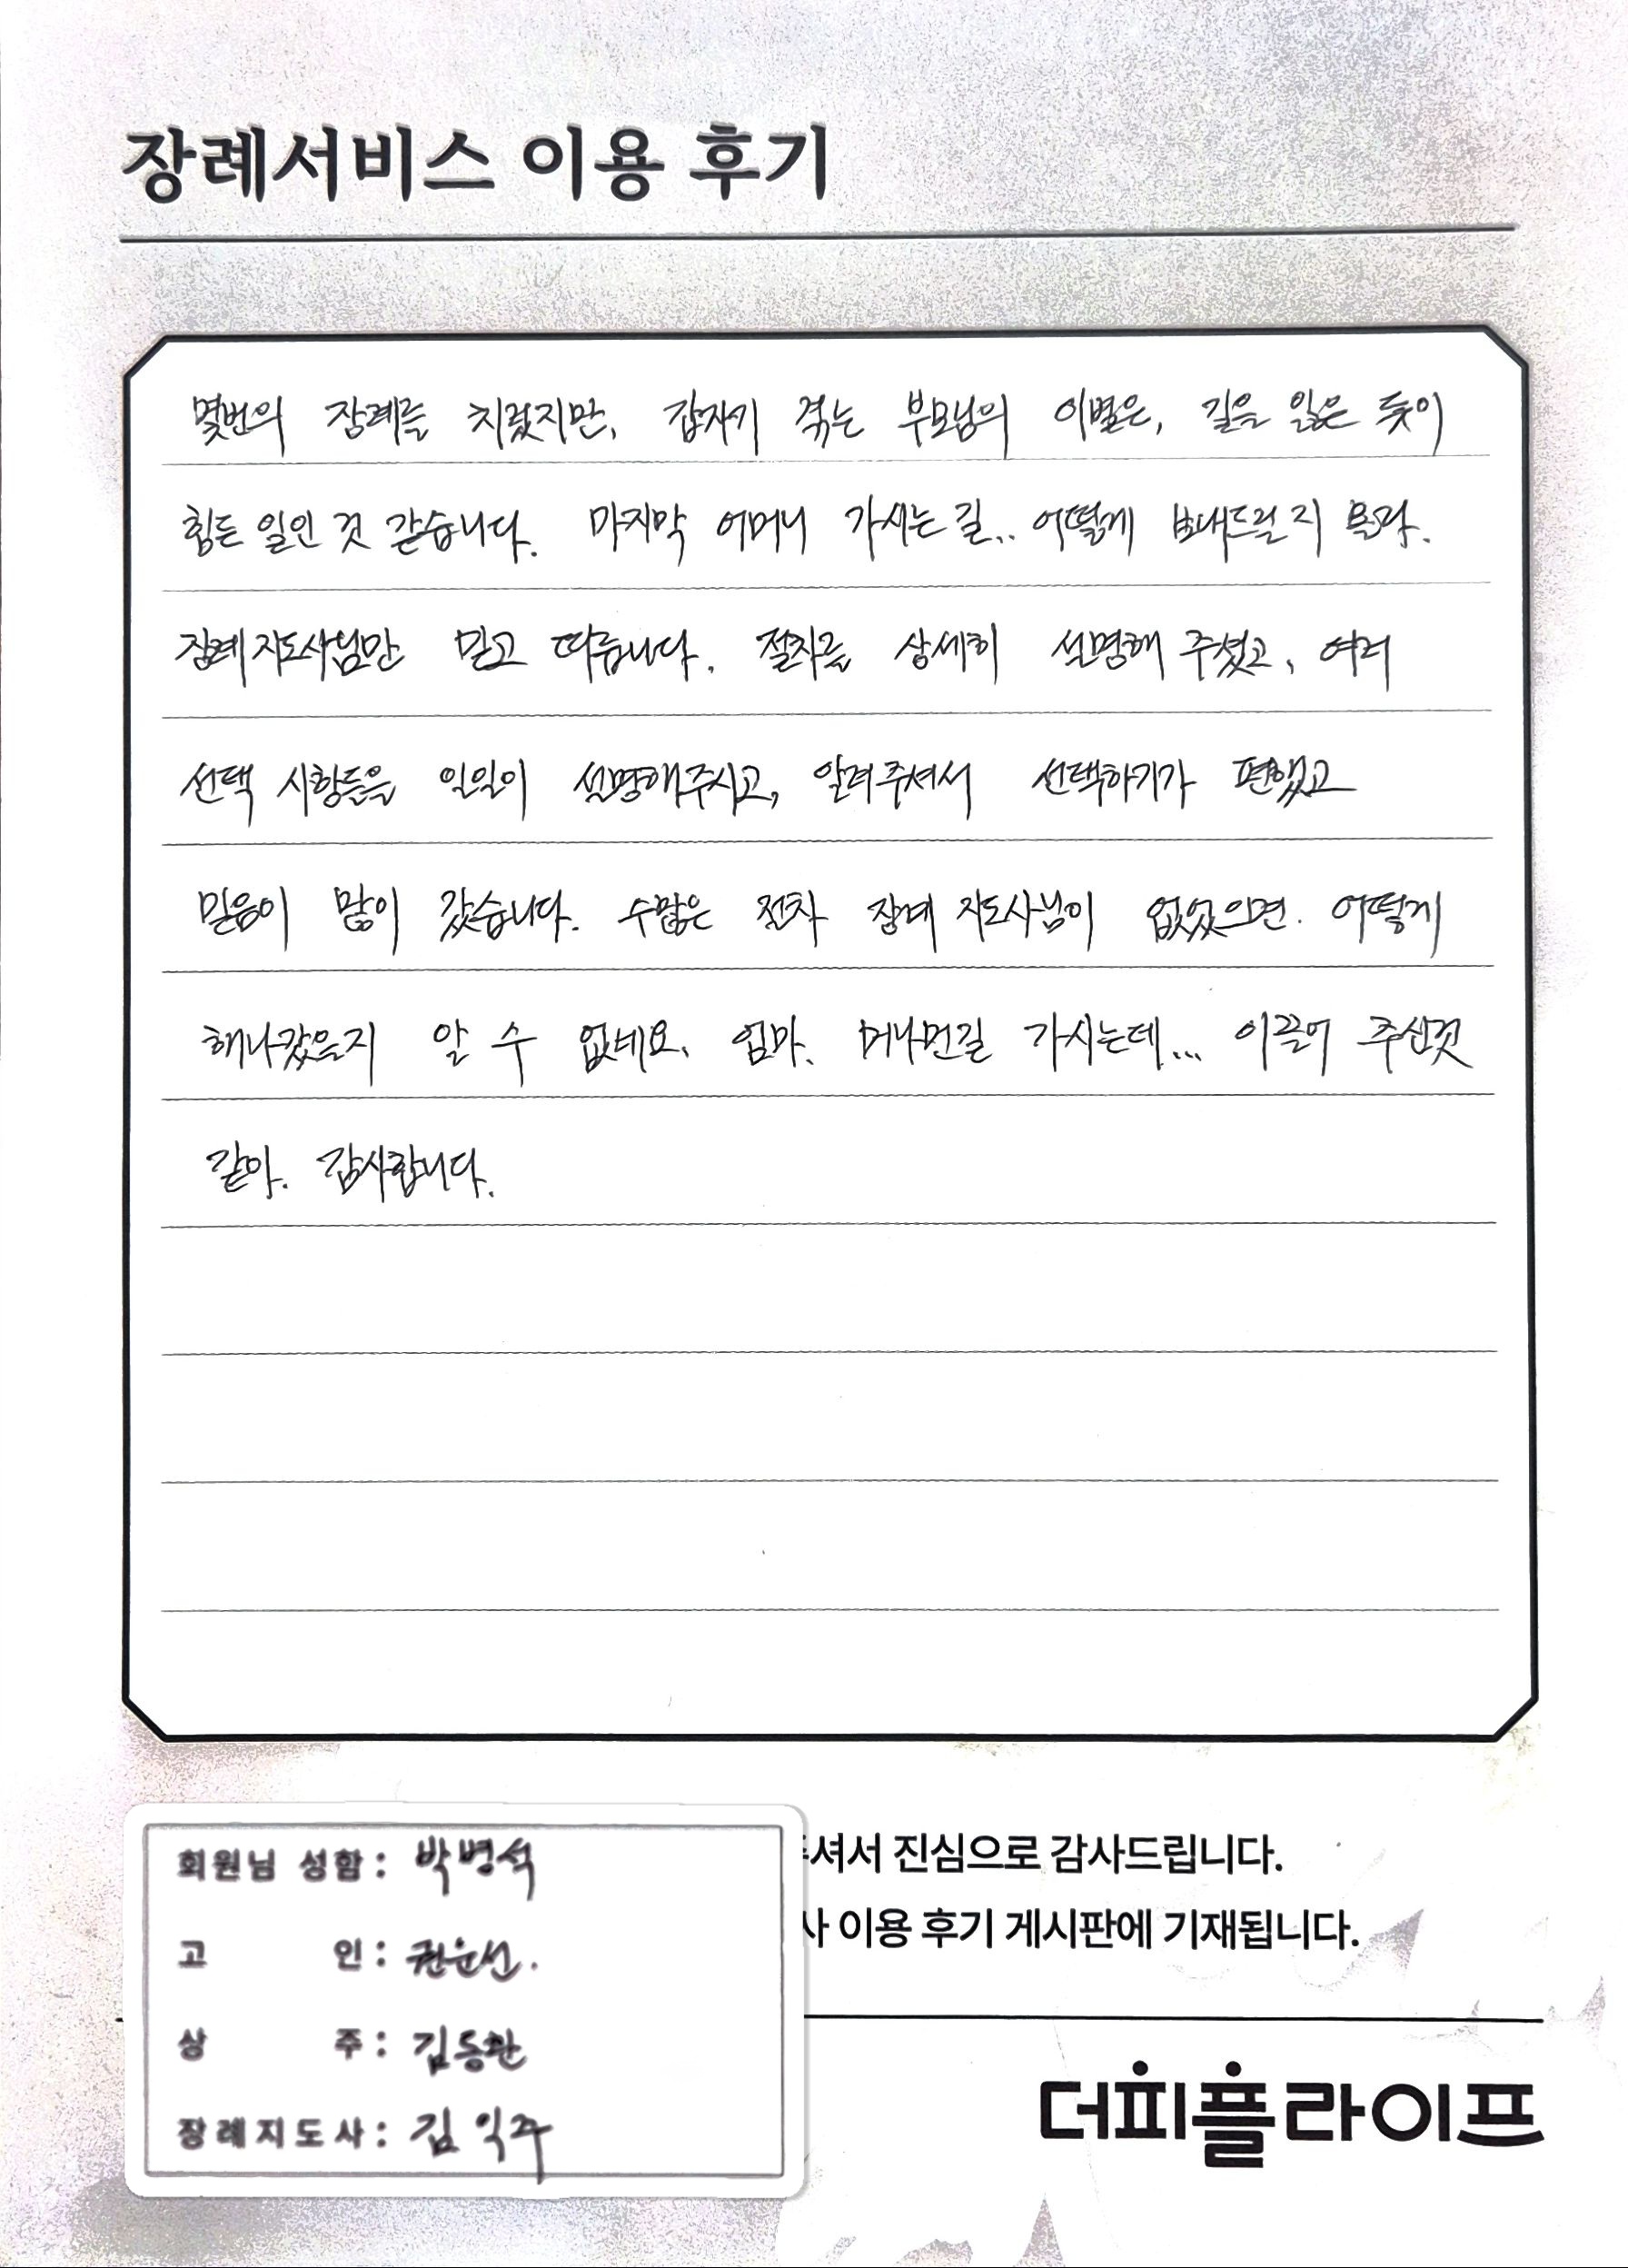 장례서비스 이용 후기
몇번의 장례를 치렀지만, 갑자기 겪는 부모님의 이별은, 길을 잃은 듯이
힘든 일인 것 같습니다. 마지막 어머니 가시는 길.. 어떻게 보내드릴지 몰라.
장례지도사님만 믿고 따릅니다. 절차를 상세히 설명해 주셨고, 여러
선택 시항들을 일일이 설명해주시고, 알려주셔서 선택하기가 편했고
믿음이 많이 갔습니다. 수많은 절차 장례 지도사님이 없었으면. 어떻게
해나갔을지 알 수 없네요. 엄마. 머나먼길 가시는데... 이끌어 주신것
같아. 감사합니다.
회원님 성함 : 박병석
고 인 : 권운선.
상 주 : 김동환
장례지도사 : 김익주
주셔서 진심으로 감사드립니다.
사 이용 후기 게시판에 기재됩니다.
더피플라이프